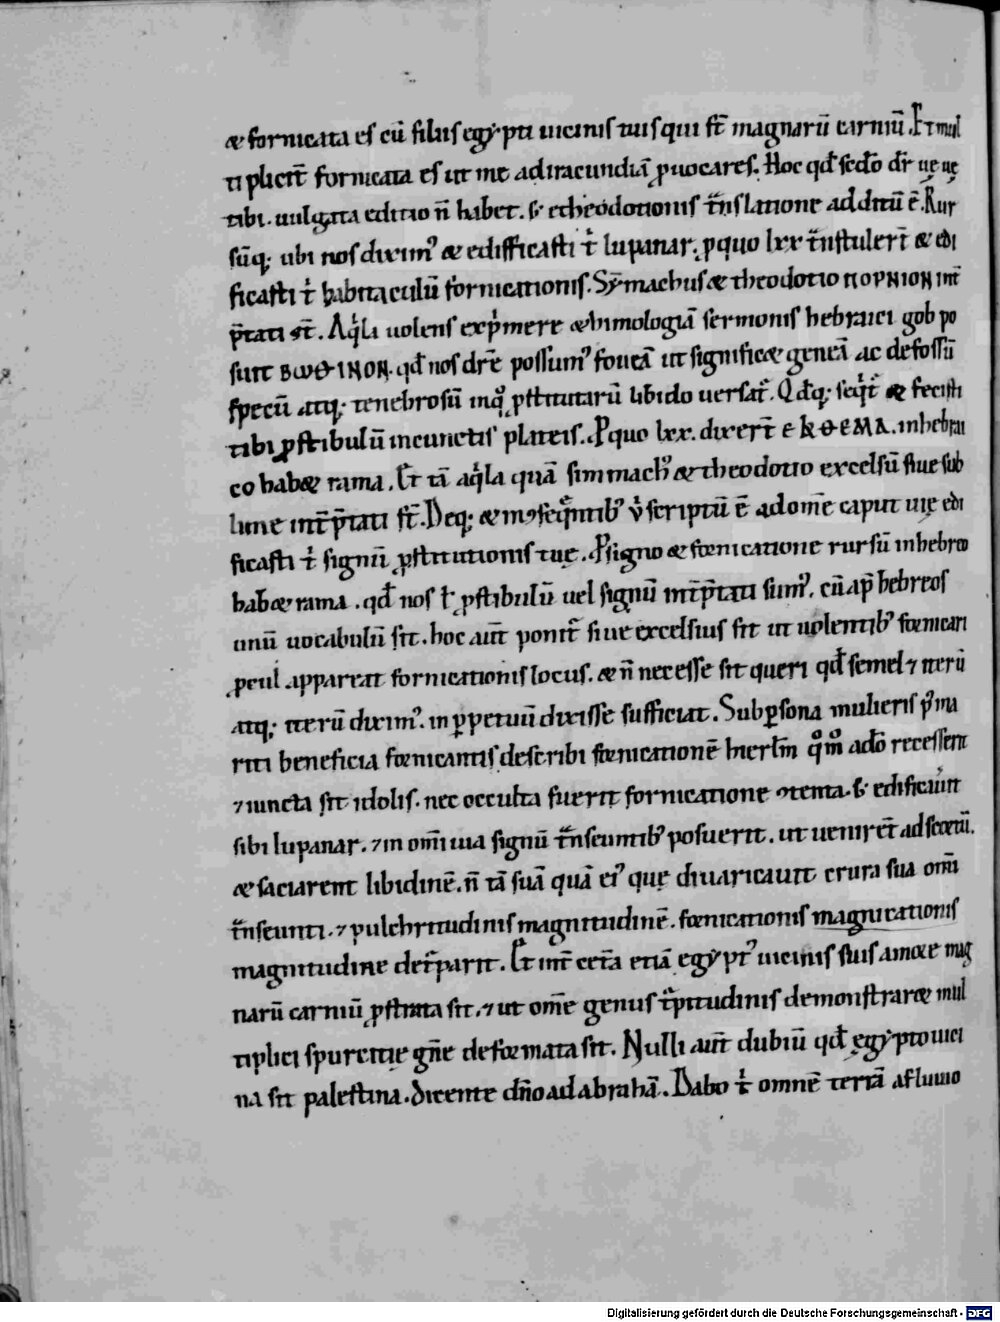 & fornicata es cū filiis egypti uicinis tuis qui st̄ magnarū carniū. Et mul
tipliciter̄ fornicata es ut me ad iracundiā ꝓuocares. Hoc qđ sedo dr̄ uę uę
tibi. uulgata editio n̄ habet. s; & theodotionis tr̄nslatione additū ē. Rur
sūq; ubi nos diximꝰ & ediFficasti t̄ lupanar. ꝓ quo lxx tr̄nstuler̄t & edi
ficasti t̄ habitaculū fornicationis. Sȳmachus & theodotio ΠΟΡΝΙΟΝ int̄
p̄tati st̄. Aqla uolens exp̄mere & hinmologiā sermonis hebraici gob po
suit ΒωΘΙΝΟΝ. qđ nos dr̄e possumꝰ foueā ut signific& geneā ac defossū
specū atq; tenebrosū inqͦ ꝓstitutarū libido uersat᷑. Qđq; seqt᷑ & fecisti
tibi ꝓstibulū in cunctis plateis. Pquo lxx. dixer̄t ΕΚΘΕΜΑ. in hebrai
co hab& rama. Et tā aqla quā simmachꝰ & theodotio excelsū siue sub
lime int̄p̄tati st̄. Deq; & in ꝯseq̄ntibꝰ ubi scriptū ē ad om̄e caput uię edi
ficasti t̄ signū ꝓstitutionis tuę. P signo & fornicatione rursū in hebreo
hab& rama. qđ nos t̄ ꝓstibulū uel signū int̄p̄tati sumꝰ. cū ap̄ hebreos
unū uocabulū sit. hoc aut̄ ponit᷑ siue excelsius sit ut uolentibꝰ fornicari
ꝓcul appareat fornicationis locus. & n̄ necesse sit queri qđ semel ⁊ iterū
atq; iterū diximꝰ. in ꝑpetuū dixisse sufficiat. Sub ꝑsona mulieris pͥ ma
riti beneficia fornicantis describi fornicationē hierlm̄ qͦmͦ ad̄o recesserit
⁊ iuncta sit idolis. nec occulta fuerit fornicatione ꝯtenta. s; edificauit
sibi lupanar. ⁊ in om̄i uia signū tr̄nseuntibꝰ posuerit. ut uenirēt ad scortū.
& saciarent libidinē. n̄ tā suā quā eiꝰ que diuaricauit crura sua om̄i
tr̄nseunti. ⁊ pulchritudinis magnitudinē. fornicationis magnicationis
magnitudine det᷑parit. Et int̄ cet̄a etiā egyptꝰ uicinis suis amore mag
narū carniū ꝓstrata sit. ⁊ ut om̄e genus t᷑pitudinis demonstrar& mul
tiplici spurcitię gn̄e deformata sit. Nulli aut̄ dubiū qđ ęgypto uici
na sit palestina. dicente dn̄o ad abrahā. Dabo t̄ omnē terrā a fluuio